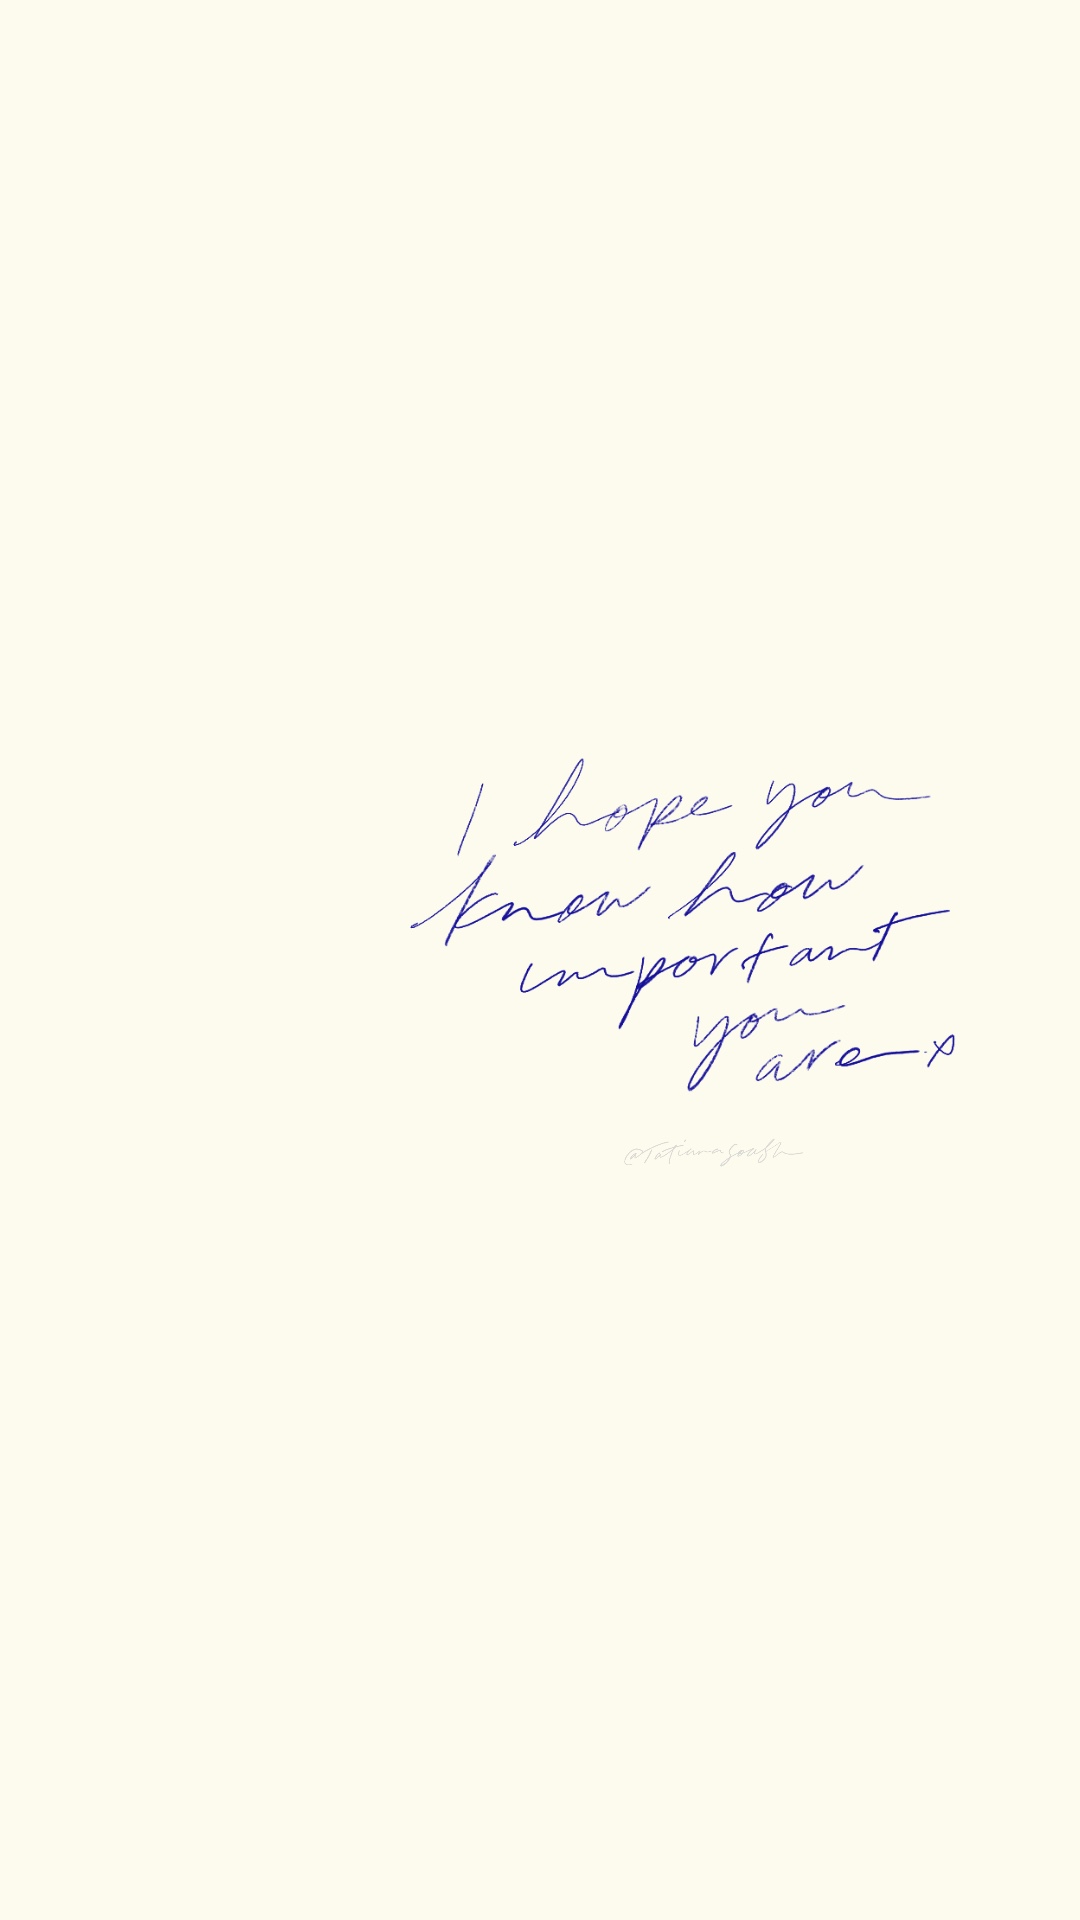 I hope you
know how
important
you
are x
@Tatianasoash